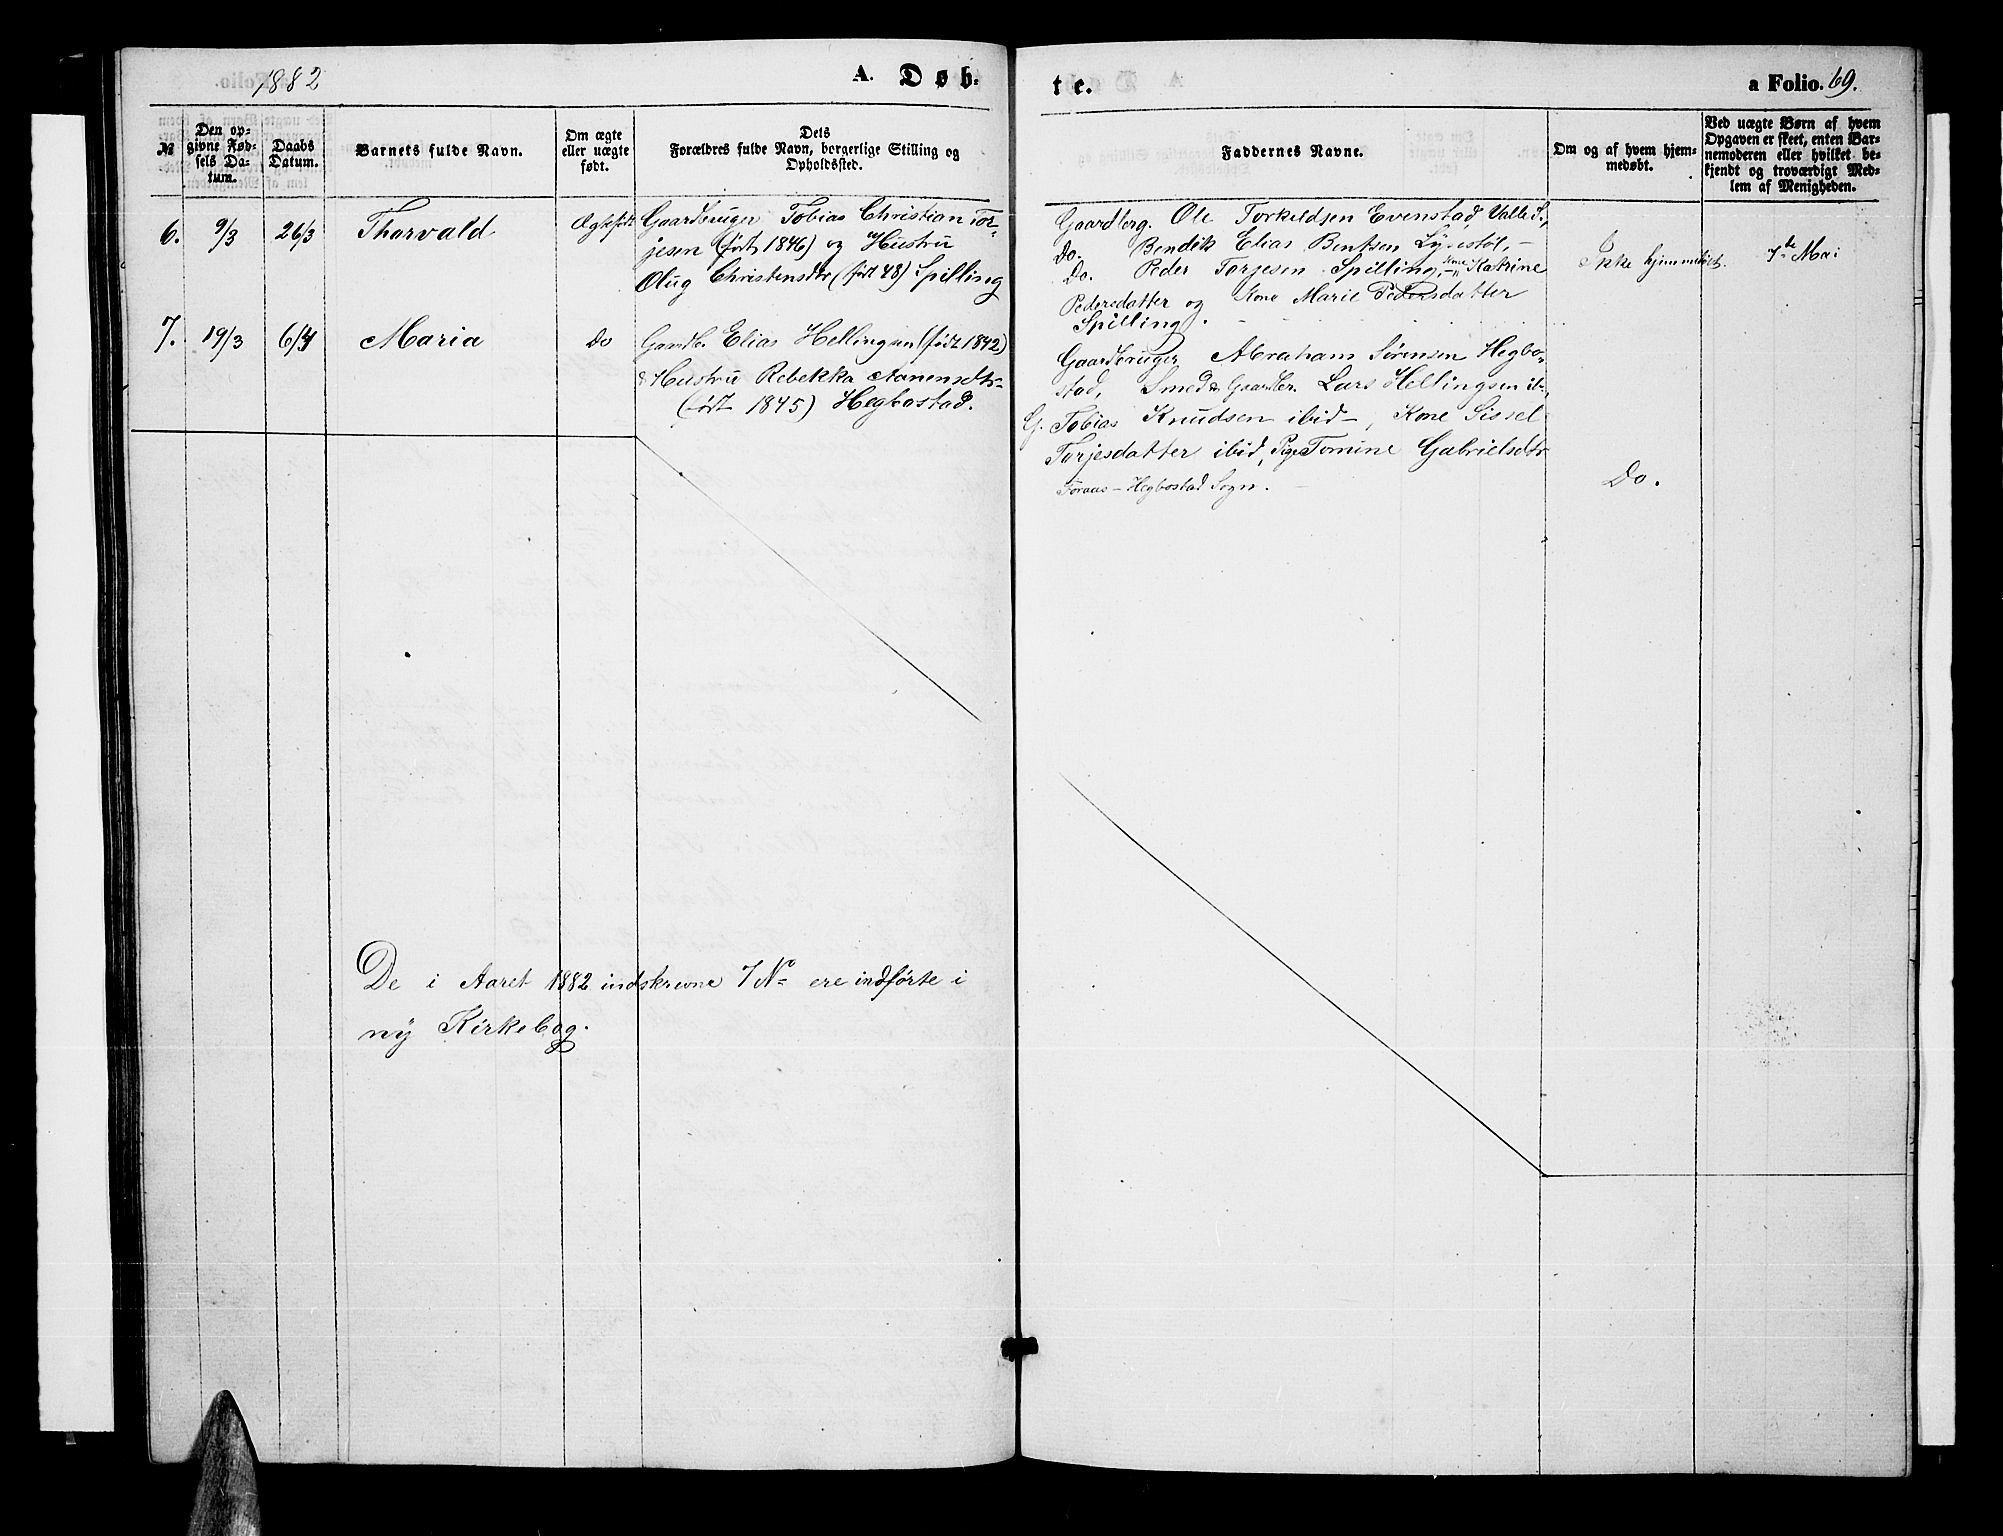 1882
A. Døb-
te.
a Folio. 69.
№
Den op-
givne Fød-
sels Da-
tum.
Daabs
Datum.
Barnets fulde Navn.
Om ægte
eller uægte
født.
Dets
Forældres fulde Navn, borgerlige Stilling og
Opholdssted.
Faddernes Navne.
Om og af hvem hjem-
medøbt.
Ved uægte Børn af hvem
Opgaven er skeet, enten Bar-
nemoderen eller hvilket be-
kjendt og troværdigt Med-
lem af Menigheden.
6. 9/3 26/3 Thorvald Ægtefødt
Gaardbruger Tobias Christian Tor-
jesen (født 1846) og Hustru
Olug Christensdtr (født 48) Spilling
Gaardbrg. Ole Torkildsen Evenstad, Valle S.,
Do. Bendik Elias Bentsen
Do. Peder Torjesen Spilling, Kone Katrine
Pedersdatter og Kone Marie Pedersdatter
Spilling.
Ikke hjemmedøbt.
7de Mai
7. 19/3 6/4 Maria Do
Gaardbr. Elias Hellingsen (født 1842)
& Hustru Rebekka Aanensdtr
(født 1845) Hegbostad.
Gaardbruger Abraham Sørensen Hegbo-
stad, Smed & Gaardbr. Lars Hellingsen ib-,
G. Tobias Knudsen ibid-, Kone Sissel
Torjesdatter ibid, Pige Tomine Gabrielsdtr
Foraas - Hegbostad Sogn.
Do.
De i Aaret 1882 indskrevne 7 No ere indførte i
ny Kirkebog.